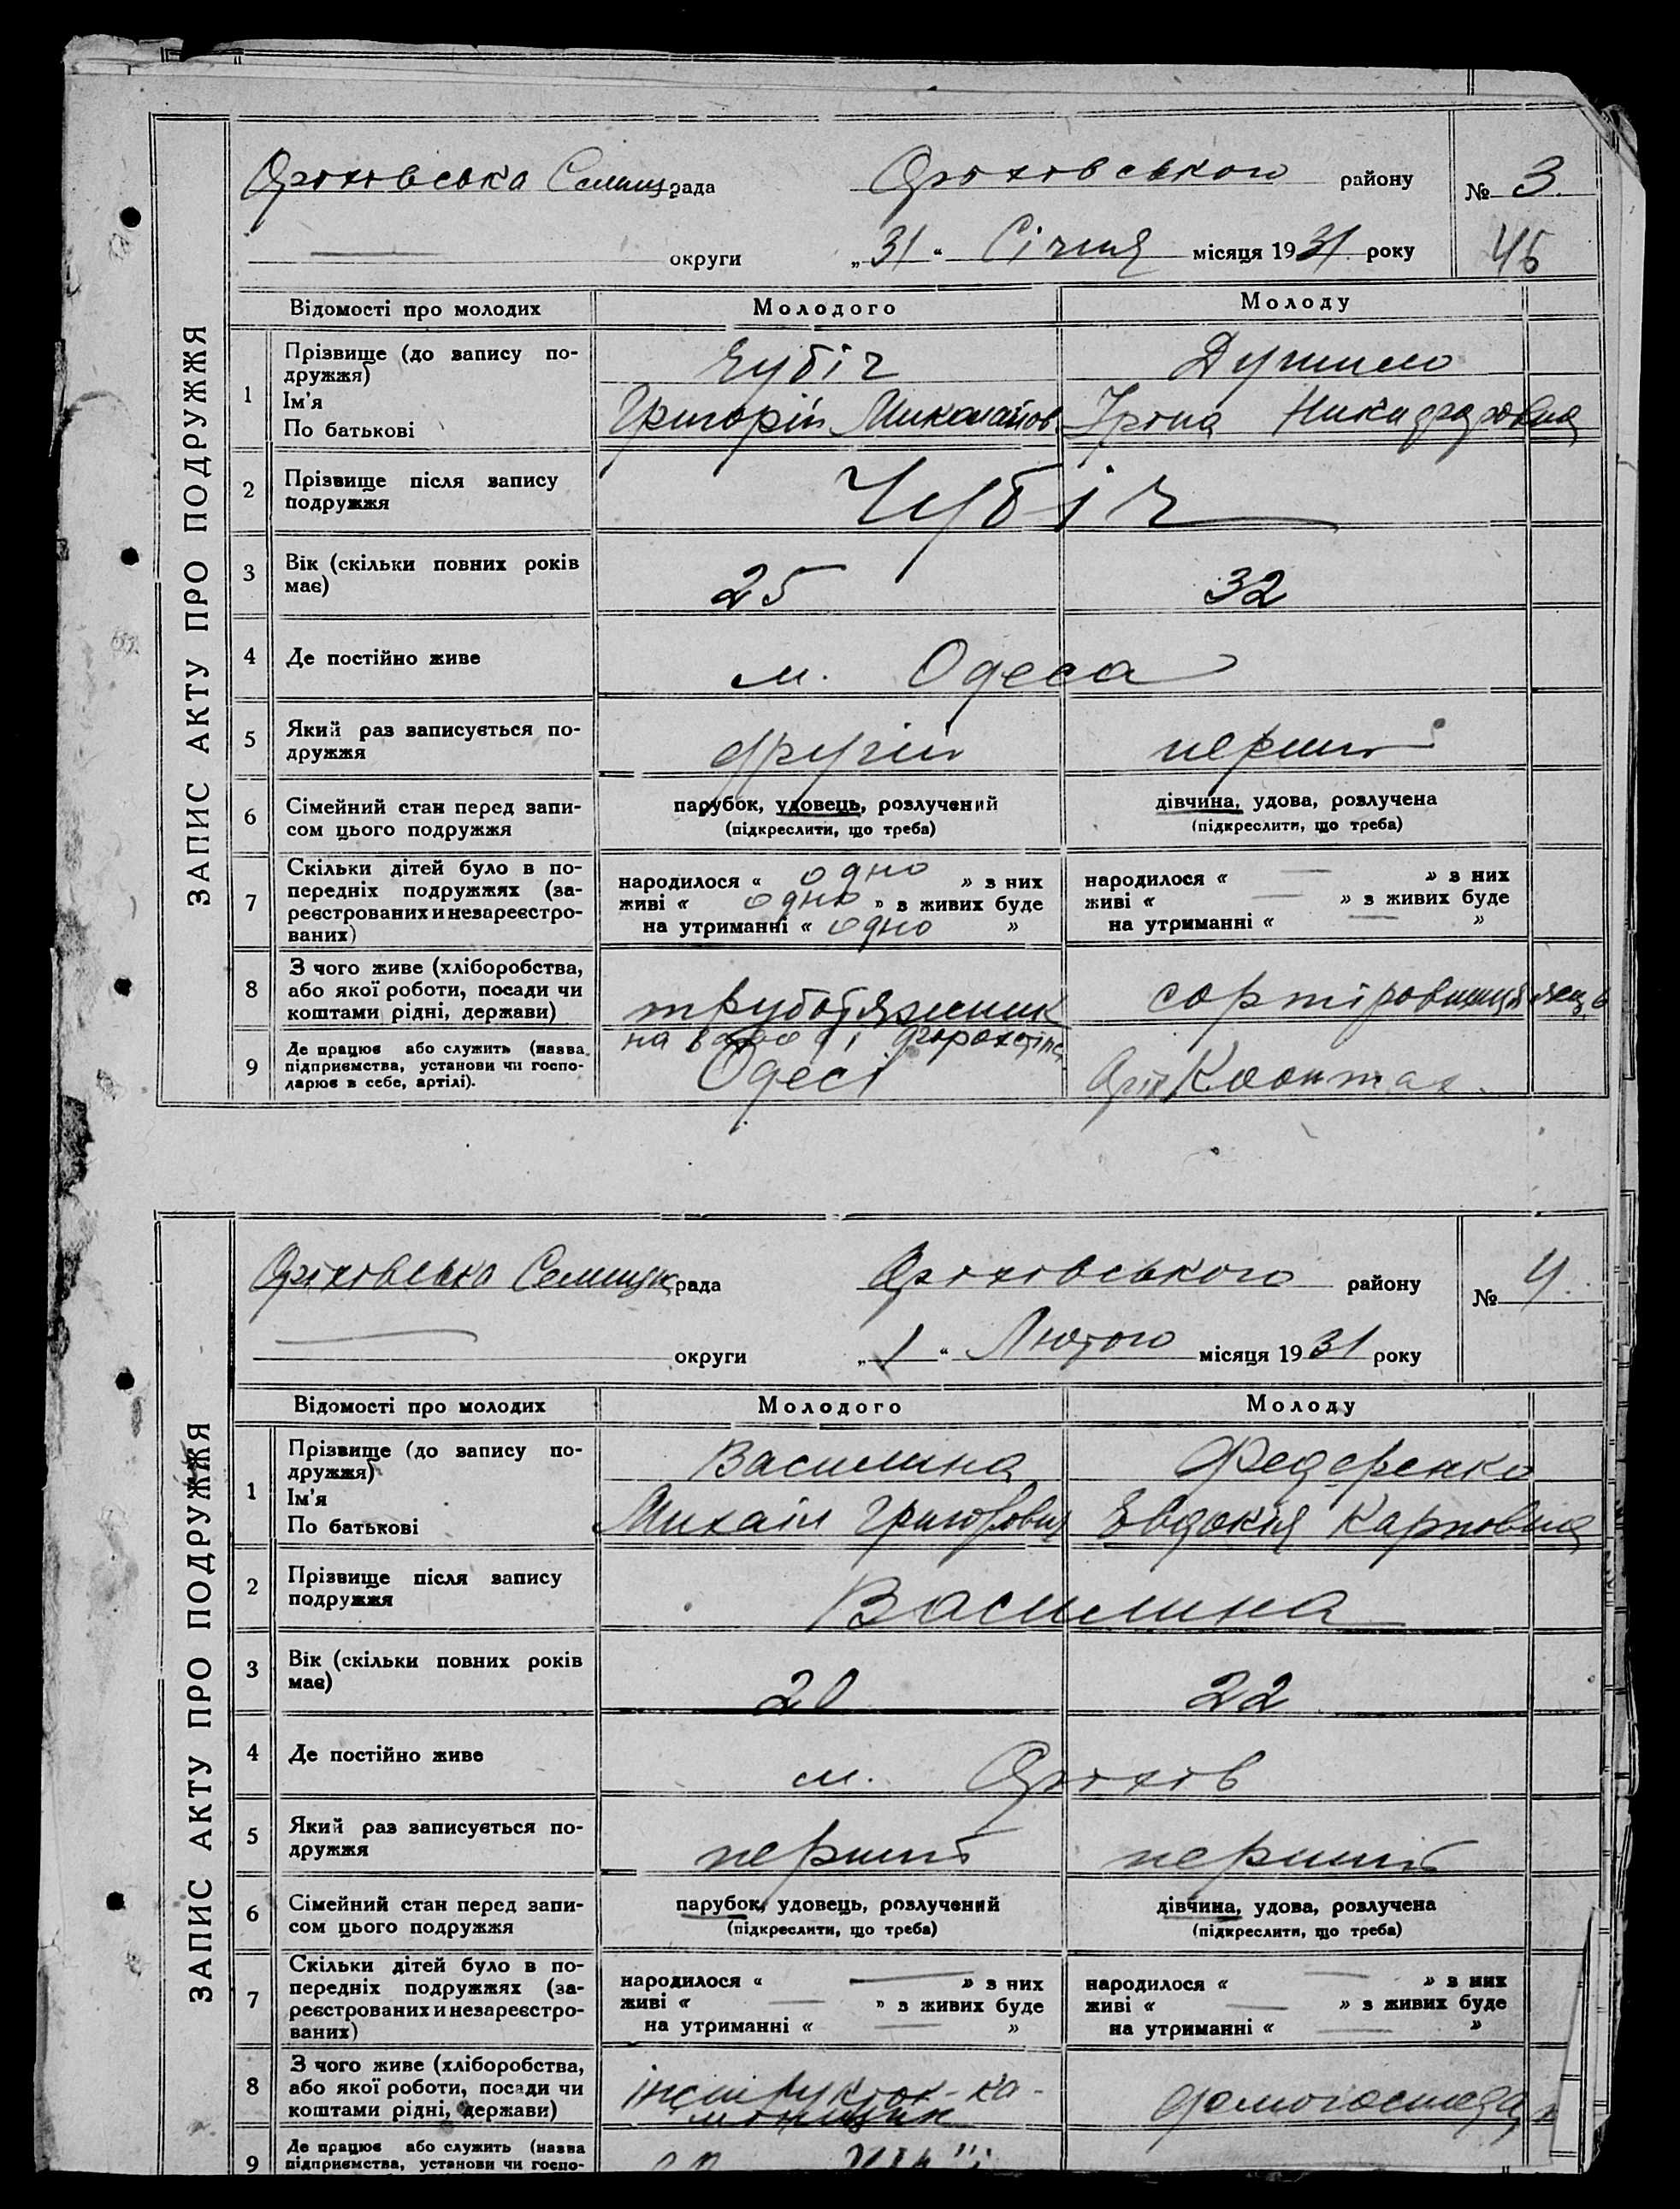 ЗАПИС АКТУ ПРО ПОДРУЖЖЯ
Оріхівська Селищ. рада Оріхівського району № 3
округи „31“ Січня місяця 1931 року 45
Відомості про молодих Молодого Молоду
1 Прізвище (до запису подружжя) Чубіч
Ім'я
По батькові Григорій Миколайов. Іріна Никандровна
2 Прізвище після запису подружжя Чубіч
3 Вік (скільки повних років має) 25 32
4 Де постійно живе м. Одеса
5 Який раз записується подружжя другій перший
6 Сімейний стан перед записом цього подружжя парубок, удовець, розлучений дівчина, удова, розлучена
(підкреслити, що треба) (підкреслити, що треба)
7 Скільки дітей було в попередніх подружжях (зареєстрованих и незареєстрованих)
народилося « одно » з них народилося « — » з них
живі « одно » з живих буде живі « — » з живих буде
на утриманні « одно » на утриманні « — »
8 З чого живе (хліборобства, або якої роботи, посади чи коштами рідні, держави)
9 Де працює або служить (назва підприємства, установи чи господарює в себе, артілі). Одесі
ЗАПИС АКТУ ПРО ПОДРУЖЖЯ
Оріхівська Селищн. рада Оріхівського району № 4.
округи „1“ Лютого місяця 1931 року
Відомості про молодих Молодого Молоду
1 Прізвище (до запису подружжя) Василина Федоренко
Ім'я
По батькові Михаіл Григорович Евдокія Карповна
2 Прізвище після запису подружжя Василина
3 Вік (скільки повних років має) 20 22
4 Де постійно живе м. Оріхів
5 Який раз записується подружжя перший перший
6 Сімейний стан перед записом цього подружжя парубок, удовець, розлучений дівчина, удова, розлучена
(підкреслити, що треба) (підкреслити, що треба)
7 Скільки дітей було в попередніх подружжях (зареєстрованих и незареєстрованих)
народилося « — » з них народилося « — » з них
живі « — » з живих буде живі « — » з живих буде
на утриманні « — » на утриманні « — »
8 З чого живе (хліборобства, або якої роботи, посади чи коштами рідні, держави)
9 Де працює або служить (назва підприємства, установи чи госпо-